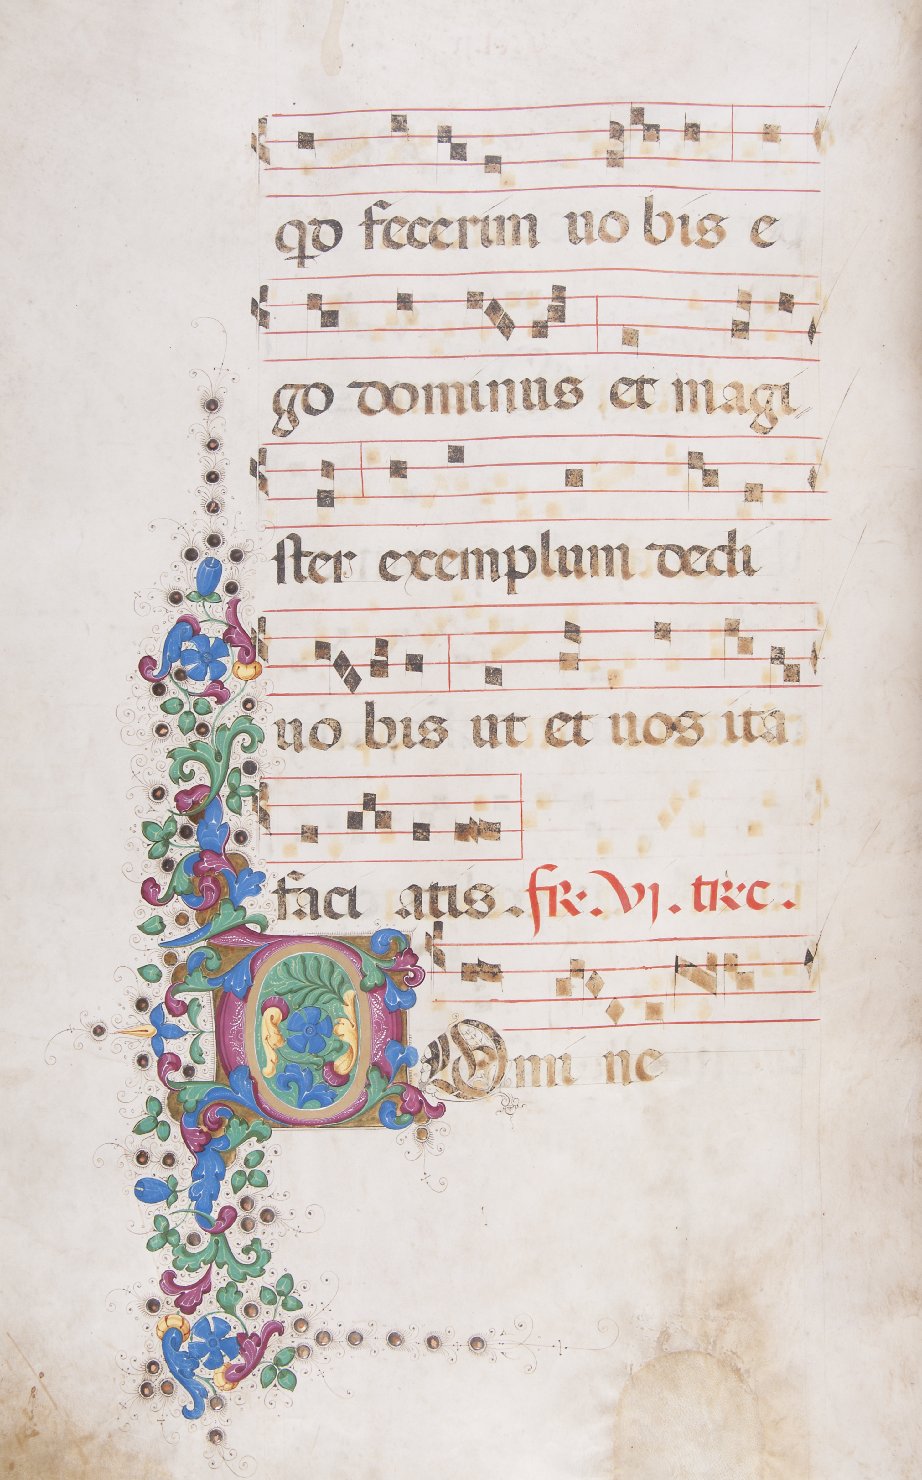 qd fecerim uo bis e
go dominus et magi
ster exemplum dedi
uo bis ut et uos ita
faci atis. fR. VI. tRc.
Domi ne